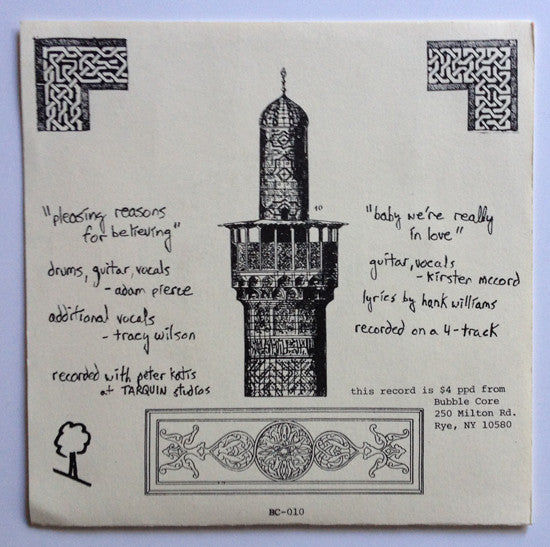 "pleasing reasons
for believing"
drums, guitar, vocals
- adam pierce
additional vocals
- tracy wilson
recorded with peter katis
at TARQUIN studios
10
"baby we're really
in love"
guitar, vocals
- kirsten mccord
lyrics by hank williams
recorded on a 4-track
this record is $4 ppd from
Bubble Core
250 Milton Rd.
Rye, NY 10580
BC-010